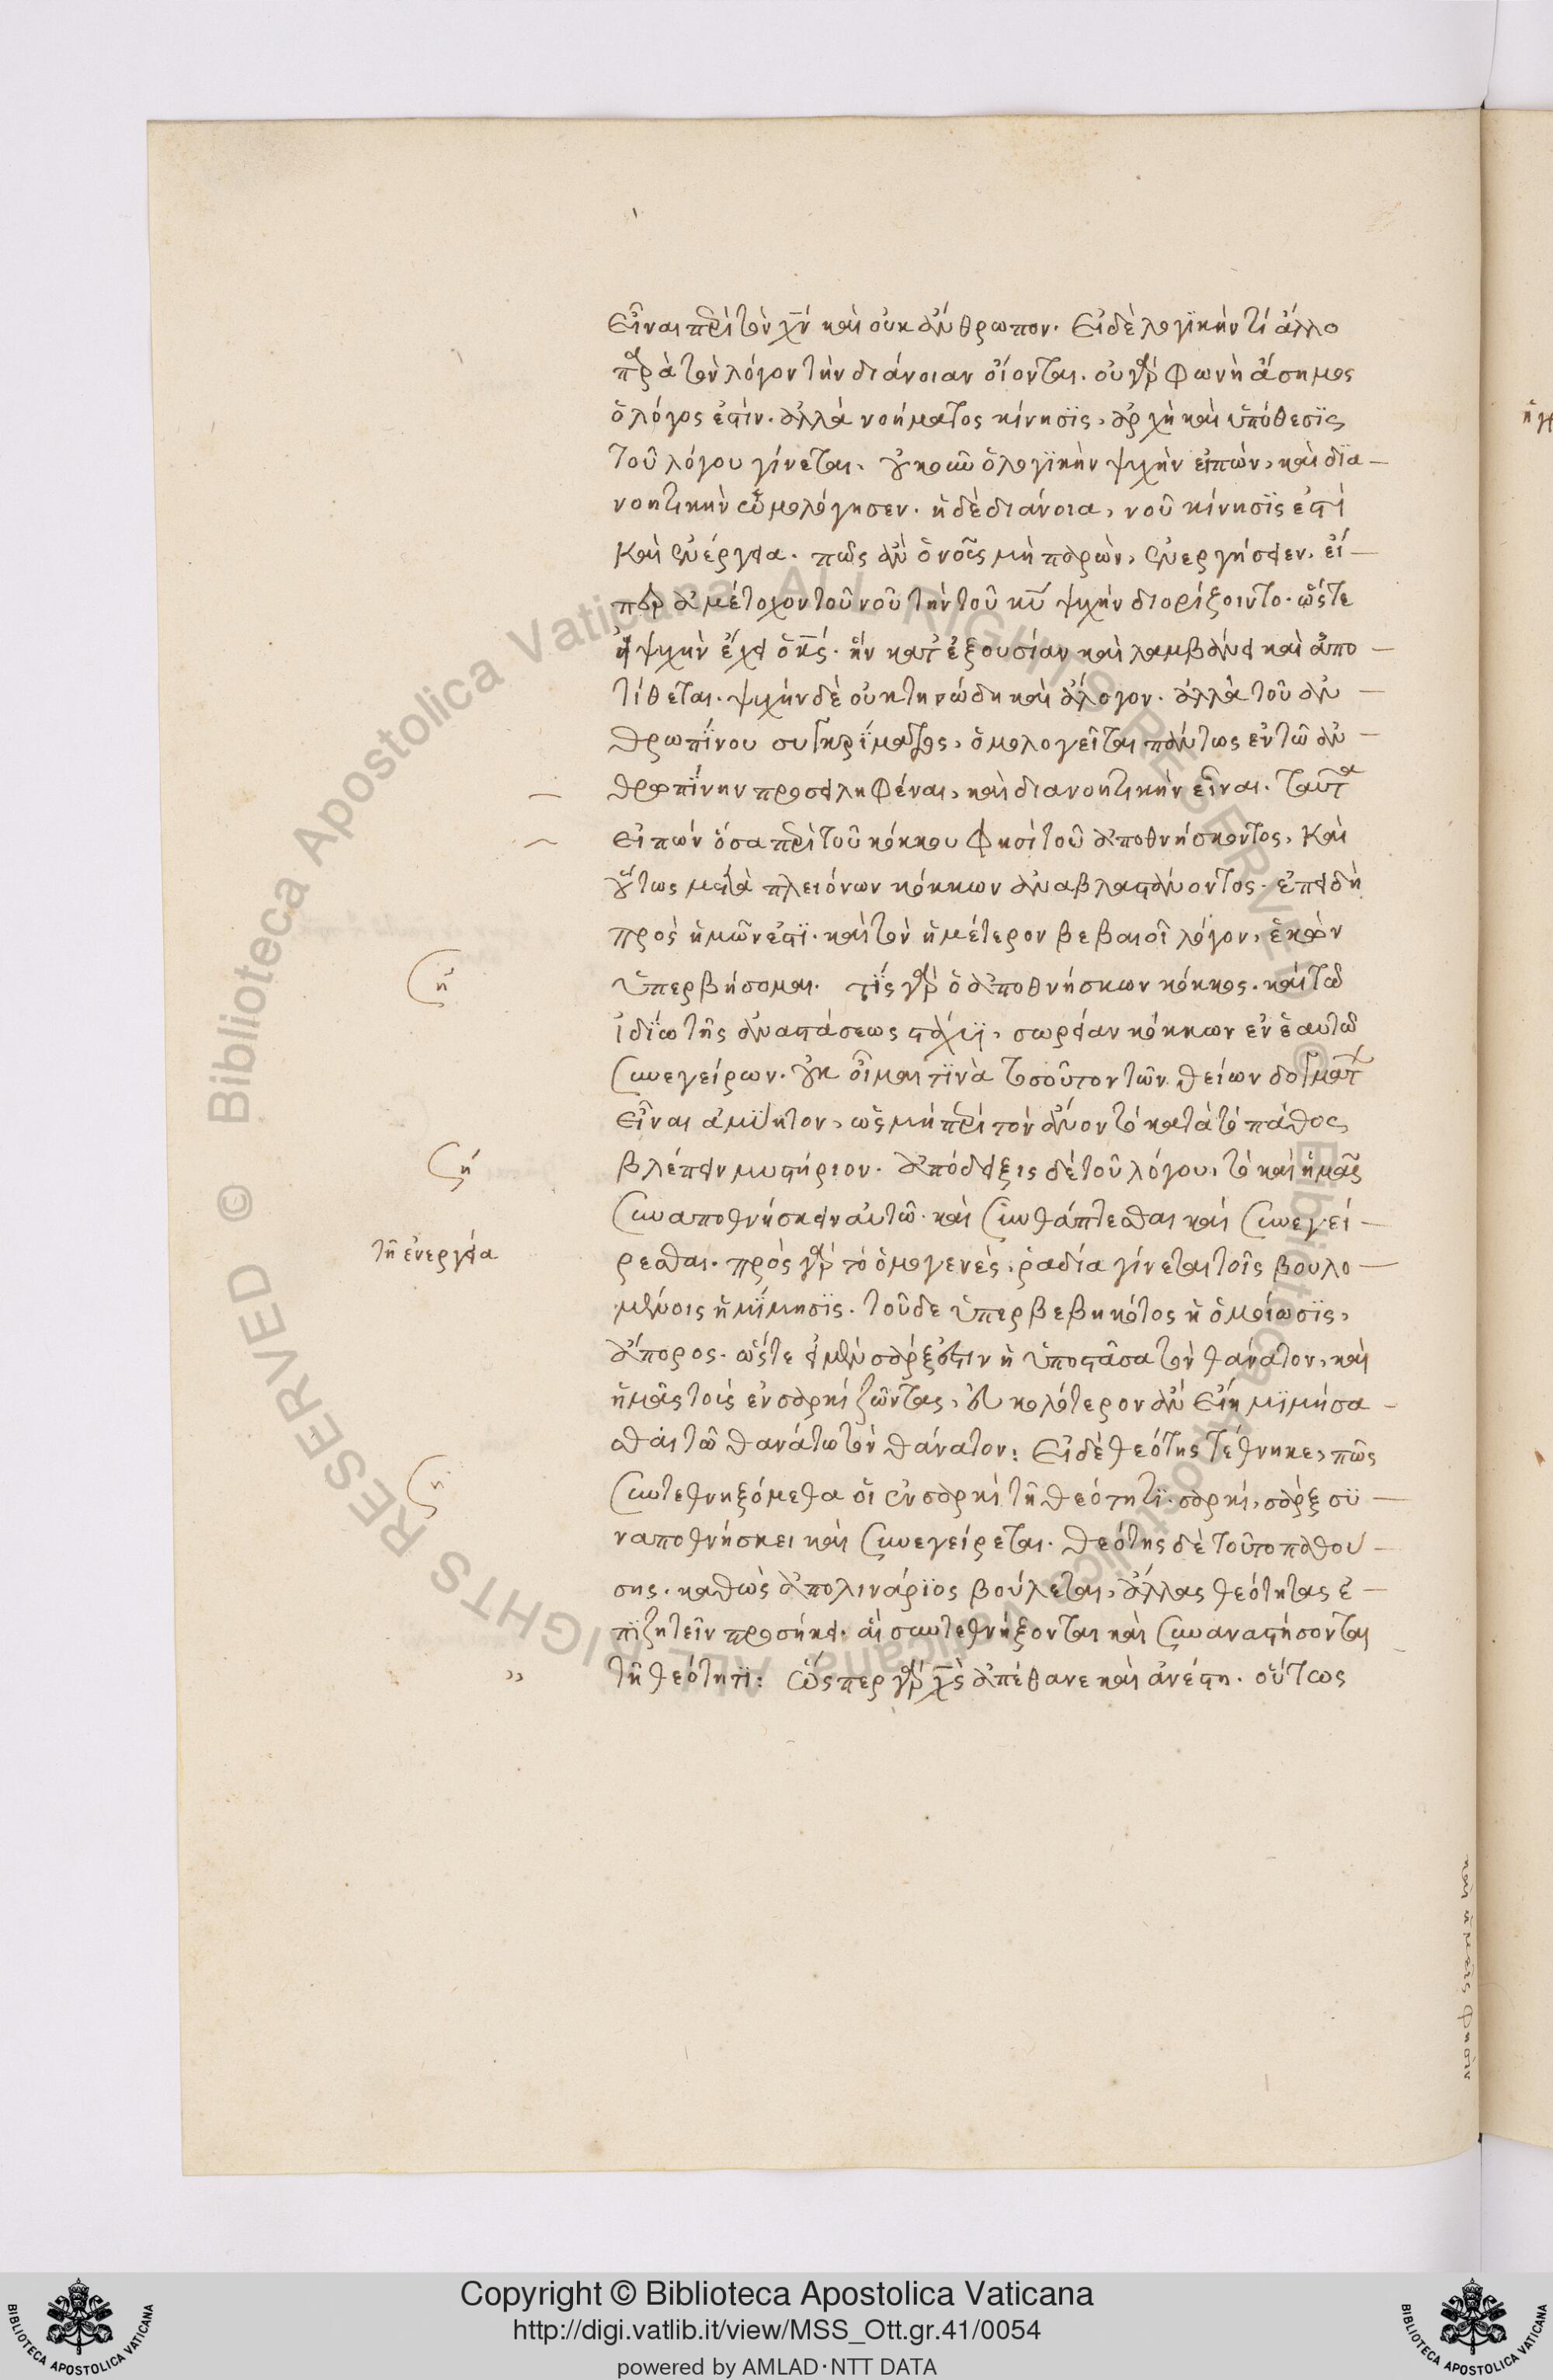 εἶναι περὶ τὸν χν̅ καὶ οὐκ ἄνθρωπον. Εἰ δὲ λογϊκὴν τί ἄλλο
παρὰ τὸν λόγον τὴν διάνοιαν οἴονται. οὐ γὰρ φωνὴ ἄσημος
ὁ λόγος ἐστίν. ἀλλὰ νοήματος κίνησϊς, ἀρχὴ καὶ ὑπόθεσϊς
τοῦ λόγου γίνεται. οὐκοῦν ὁ λογϊκὴν ψυχὴν εἰπὼν, καὶ δϊα-
νοητικὴν ὡμολόγησεν. ἡ δὲ διάνοια, νοῦ κίνησϊς ἐστὶ
καὶ ἐνέργεια. πῶς ἂν ὁ νοῦς μὴ παρὼν, ἐνεργήσειεν, εἴ-
περ ἀμέτοχον τοῦ νοῦ τὴν τοῦ κυ̅ ψυχήν διορίξοιντο. ὥστε
εἰ ψυχὴν ἔχει ὁ κς̅. ἥν κατ' ἐξουσίαν καὶ λαμβάνει καὶ ἀπο-
τίθεται. ψυχήν δὲ οὐ κτηνώδη καὶ ἄλογον. ἀλλὰ τοῦ ἀν-
θρωπΐνου συγκρΐματος, ὁμολογεῖται πάντως ἐν τῶ ἀν-
θρωπΐνην προσειληφέναι, καὶ διανοητικὴν εἶναι. ταῦτα
εἰπών ὅσα περὶ τοῦ κόκκου φησί τοῦ ἀποθνήσκοντος, καὶ
οὕτως μετὰ πλειόνων κόκκων ἀναβλαστάνοντος. ἐπειδὴ
πρὸς ἡμῶν ἐστϊ. καὶ τὸν ἡμέτερον βεβαιοῖ λόγον, ἑκὼν
ὑπερβήσομαι. τΐς γὰρ ὁ ἀποθνήσκων κόκκος. καὶ τῶ
ἰδΐω τῆς ἀναστάσεως στάχυϊ, σωρείαν κόκκων ἐν ἑαυτῶ
συνεγείρων. οὐκ οἶμαι τϊνὰ τοσοῦτον τῶν θείων δογμάτων
εἶναι ἀμΰητον, ὡς μή περὶ τὸν ἄνον τὸ κατὰ τὸ πάθος
βλέπειν μυστήριον. ἀπόδειξις δὲ τοῦ λόγου, τὸ καὶ ἡμᾶς
συναποθνήσκειν αὐτῶ. καὶ συνθάπτεσθαι καὶ συνεγεί-
τῆ ἐνεργεία
ρεσθαι. πρὸς γὰρ τὸ ὁμογενές, ῥαδία γίνεται τοῖς βουλο-
μένοις ἡ μΐμησϊς. τοῦ δε ὑπερβεβηκότος ἡ ὁμοίωσϊς,
ἄπορος. ὥστε εἰ μὲν σάρξ ἐστιν ἡ ὑποστᾶσα τὸν θάνατον, καὶ
ἡμᾶς τοὺς ἐν σαρκί ζῶντας, εὐκολότερον ἂν εἴη μϊμήσα-
σθαι τῶ θανάτω τὸν θάνατον: Εἰ δὲ θεότης τέθνηκε, πῶς
συντεθνηξόμεθα οἱ ἐν σαρκὶ τῆ θεότητϊ. σαρκὶ, σὰρξ σϋ-
ναποθνήσκει καὶ συνεγείρεται. θεότης δὲ τοῦτο παθού-
σης. καθὼς ἀπολινάρϊος βούλεται, ἄλλας θεότητας ἐ-
πϊζητεῖν προσήκει. αἱ συντεθνήξονται καὶ συναναστήσονται
τῆ θεότητϊ: ὥσπερ γὰρ χς̅ ἀπέθανε καὶ ἀνέστη. οὕτως
ALL RIGHTS RESERVED © Biblioteca Apostolica Vaticana
Copyright © Biblioteca Apostolica Vaticana
http://digi.vatlib.it/view/MSS_Ott.gr.41/0054
powered by AMLAD·NTT DATA
BIBLIOTECA APOSTOLICA VATICANA
BIBLIOTECA APOSTOLICA VATICANA